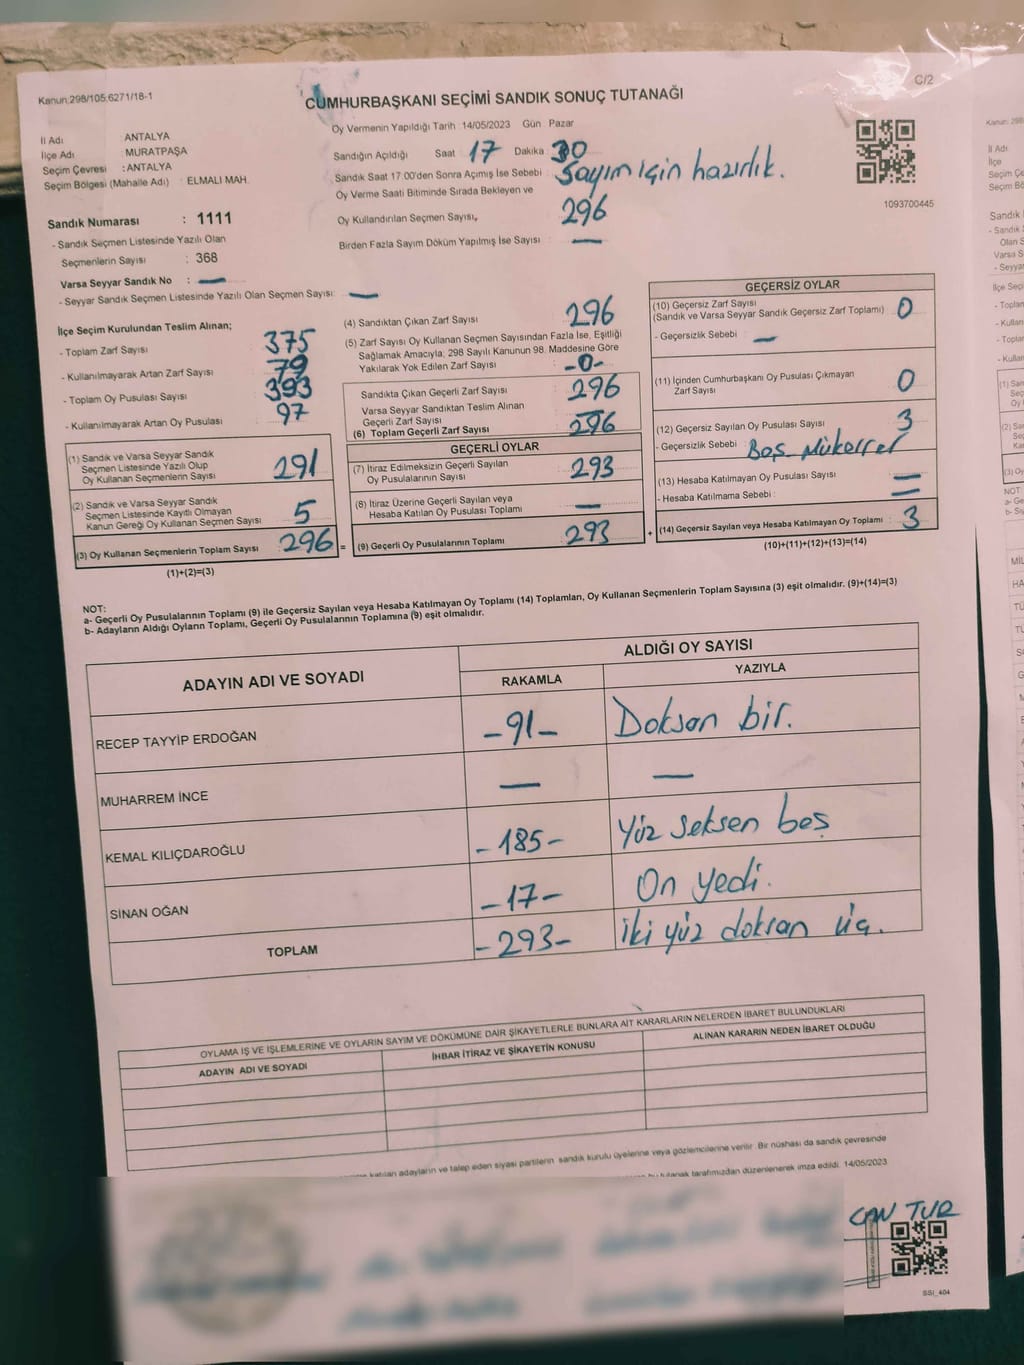 Kanun:298/105;6271/18-1
C/2
CUMHURBAŞKANI SEÇİMİ SANDIK SONUÇ TUTANAĞI
İl Adı : ANTALYA
İlçe Adı : MURATPAŞA
Seçim Çevresi : ANTALYA
Seçim Bölgesi (Mahalle Adı) : ELMALI MAH.
Oy Vermenin Yapıldığı Tarih :14/05/2023 Gün Pazar
Sandığın Açıldığı Saat 17 Dakika 30
Sandık Saat 17:00'den Sonra Açımış İse Sebebi : Sayım için hazırlık.
Oy Verme Saati Bitiminde Sırada Bekleyen ve
Oy Kullandırılan Seçmen Sayısı, 296
Birden Fazla Sayım Döküm Yapılmış İse Sayısı : —
1093700445
Sandık Numarası : 1111
- Sandık Seçmen Listesinde Yazılı Olan
Seçmenlerin Sayısı : 368
Varsa Seyyar Sandık No : —
- Seyyar Sandık Seçmen Listesinde Yazılı Olan Seçmen Sayısı: —
İlçe Seçim Kurulundan Teslim Alınan;
- Toplam Zarf Sayısı 375
- Kullanılmayarak Artan Zarf Sayısı 79
- Toplam Oy Pusulası Sayısı 393
- Kullanılmayarak Artan Oy Pusulası 97
(1) Sandık ve Varsa Seyyar Sandık
Seçmen Listesinde Yazılı Olup
Oy Kullanan Seçmenlerin Sayısı 291
(2) Sandık ve Varsa Seyyar Sandık
Seçmen Listesinde Kayıtlı Olmayan
Kanun Gereği Oy Kullanan Seçmen Sayısı 5
(3) Oy Kullanan Seçmenlerin Toplam Sayısı 296 =
(1)+(2)=(3)
(4) Sandıktan Çıkan Zarf Sayısı 296
(5) Zarf Sayısı Oy Kullanan Seçmen Sayısından Fazla İse, Eşitliği
Sağlamak Amacıyla; 298 Sayılı Kanunun 98. Maddesine Göre
Yakılarak Yok Edilen Zarf Sayısı -0-
Sandıkta Çıkan Geçerli Zarf Sayısı 296
Varsa Seyyar Sandıktan Teslim Alınan
Geçerli Zarf Sayısı —
(6) Toplam Geçerli Zarf Sayısı 296
GEÇERLİ OYLAR
(7) İtiraz Edilmeksizin Geçerli Sayılan
Oy Pusulalarının Sayısı 293
(8) İtiraz Üzerine Geçerli Sayılan veya
Hesaba Katılan Oy Pusulası Toplamı —
(9) Geçerli Oy Pusulalarının Toplamı 293 +
GEÇERSİZ OYLAR
(10) Geçersiz Zarf Sayısı
(Sandık ve Varsa Seyyar Sandık Geçersiz Zarf Toplamı) 0
- Geçersizlik Sebebi : —
(11) İçinden Cumhurbaşkanı Oy Pusulası Çıkmayan
Zarf Sayısı 0
(12) Geçersiz Sayılan Oy Pusulası Sayısı 3
- Geçersizlik Sebebi : Boş Mükerrer
(13) Hesaba Katılmayan Oy Pusulası Sayısı —
- Hesaba Katılmama Sebebi : —
(14) Geçersiz Sayılan veya Hesaba Katılmayan Oy Toplamı 3
(10)+(11)+(12)+(13)=(14)
NOT:
a- Geçerli Oy Pusulalarının Toplamı (9) ile Geçersiz Sayılan veya Hesaba Katılmayan Oy Toplamı (14) Toplamları, Oy Kullanan Seçmenlerin Toplam Sayısına (3) eşit olmalıdır. (9)+(14)=(3)
b- Adayların Aldığı Oyların Toplamı, Geçerli Oy Pusulalarının Toplamına (9) eşit olmalıdır.
ADAYIN ADI VE SOYADI
ALDIĞI OY SAYISI
RAKAMLA YAZIYLA
RECEP TAYYİP ERDOĞAN -91- Doksan bir.
MUHARREM İNCE — —
KEMAL KILIÇDAROĞLU -185- Yüz seksen beş
SİNAN OĞAN -17- On yedi.
TOPLAM -293- İki yüz doksan üç.
OYLAMA İŞ VE İŞLEMLERİNE VE OYLARIN SAYIM VE DÖKÜMÜNE DAİR ŞİKAYETLERLE BUNLARA AİT KARARLARIN NELERDEN İBARET BULUNDUKLARI
ADAYIN ADI VE SOYADI İHBAR İTİRAZ VE ŞİKAYETİN KONUSU ALINAN KARARIN NEDEN İBARET OLDUĞU
katılan adayların ve talep eden siyasi partilerin sandık kurulu üyelerine veya gözlemcilerine verilir. Bir nüshası da sandık çevresinde
tutanak tarafımızdan düzenlenerek imza edildi. 14/05/2023
CAN TUR
SSI_404